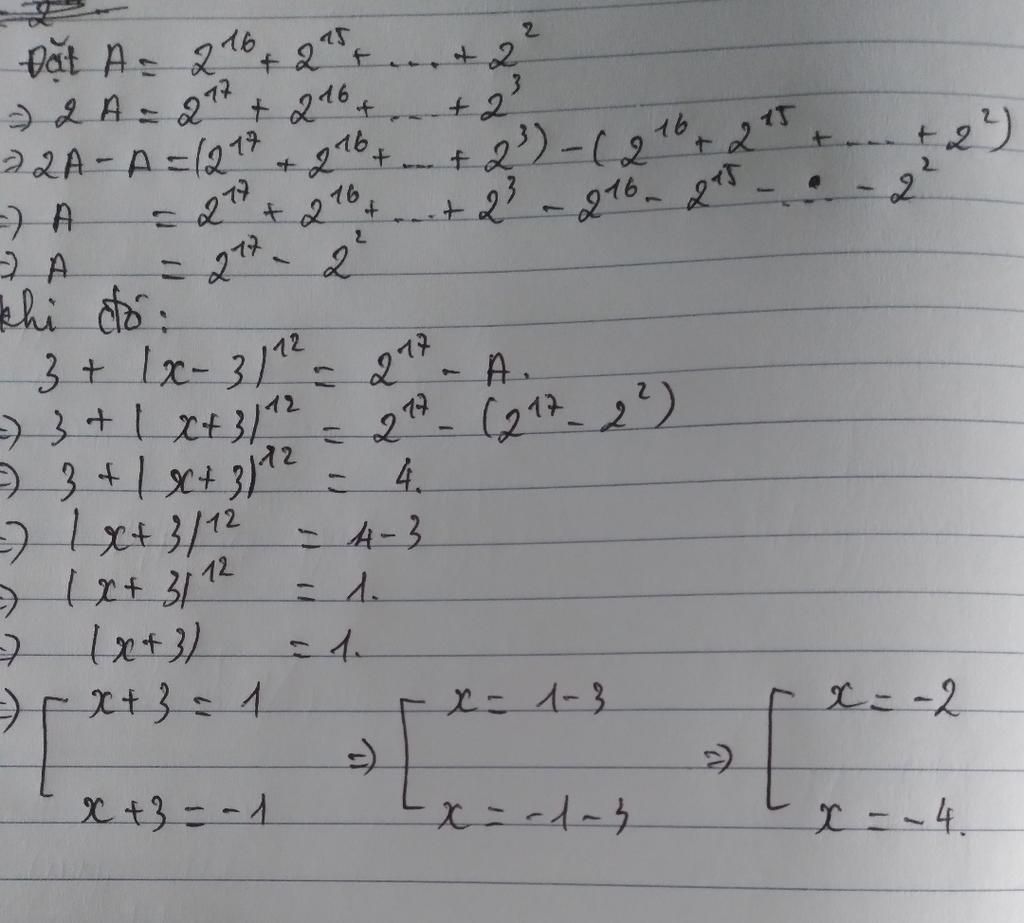 Đặt A = 2^16 + 2^15 + .... + 2^2
=> 2A = 2^17 + 2^16 + .... + 2^3
=> 2A - A = (2^17 + 2^16 + ... + 2^3) - (2^16 + 2^15 + .... + 2^2)
=> A = 2^17 + 2^16 + ... + 2^3 - 2^16 - 2^15 - ... - 2^2
=> A = 2^17 - 2^2
Khi đó:
3 + |x - 3|^12 = 2^17 - A.
=> 3 + |x+3|^12 = 2^17 - (2^17 - 2^2)
=> 3 + |x+3|^12 = 4.
=> |x+3|^12 = 4-3
=> |x+3|^12 = 1.
=> |x+3| = 1.
=> [ x+3 = 1 => [ x = 1-3 => [ x = -2
x+3 = -1 x = -1-3 x = -4.